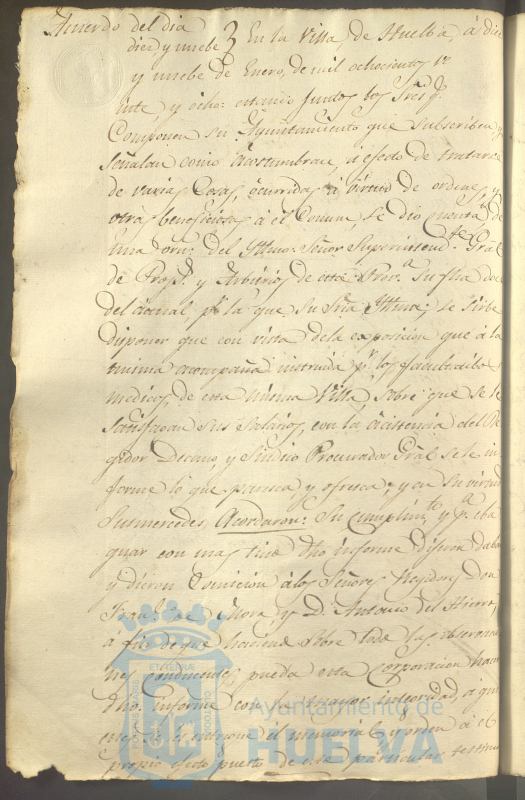 Acuerdo del dia
diez y nuebe } En la Villa de Huelba, á diez
y nuebe de Enero, de mil ochocientos v
einte, y ocho: estando juntos los Sres q.
Componen su Ayuntamiento que subscriben, y
señalan como acostumbran, a efecto de tratar
de varias Cosas, ócurridas á virtud de ordenes, y
otras beneficiosas á el Comun, se dio cuenta de
una orn: del Yltmo: Señor Superintend.te Gral
de Prop.s y Arbitrios de esta Prov.a su fha doce
del actual p.r la que su Sria Yltma: se sirbe
disponer que con vista dela exposicion que á la
misma acompaña instruida p.r los facultatibos
medicos, de esta misma Villa, sobre que se le
satisfagan sus salarios, con la ásistencia del Re
gidor Decano, y Sindico Procurador Gral se le in
forme lo que paresca y ofresca, y en su virtud
Susmercedes, Acordaron: Su cumplim.to y p.a eba
quar con mas tino dho informe digeron daban
y dieron Comicion á los Señores Regidores Don
Fran.co de Mora, y D. Antonio del Hierro,
á fin de que haciendo sobre todo las observacio
nes conducentes pueda esta Corporacion hacer
dho. informe con la mayor integridad, á que
se le entregue el memorial y orden á el
propio efecto puesto de este particular testimo
ET TERRAE
PORTUS MARIS
CUSTODIA
Ayuntamiento de
HUELVA